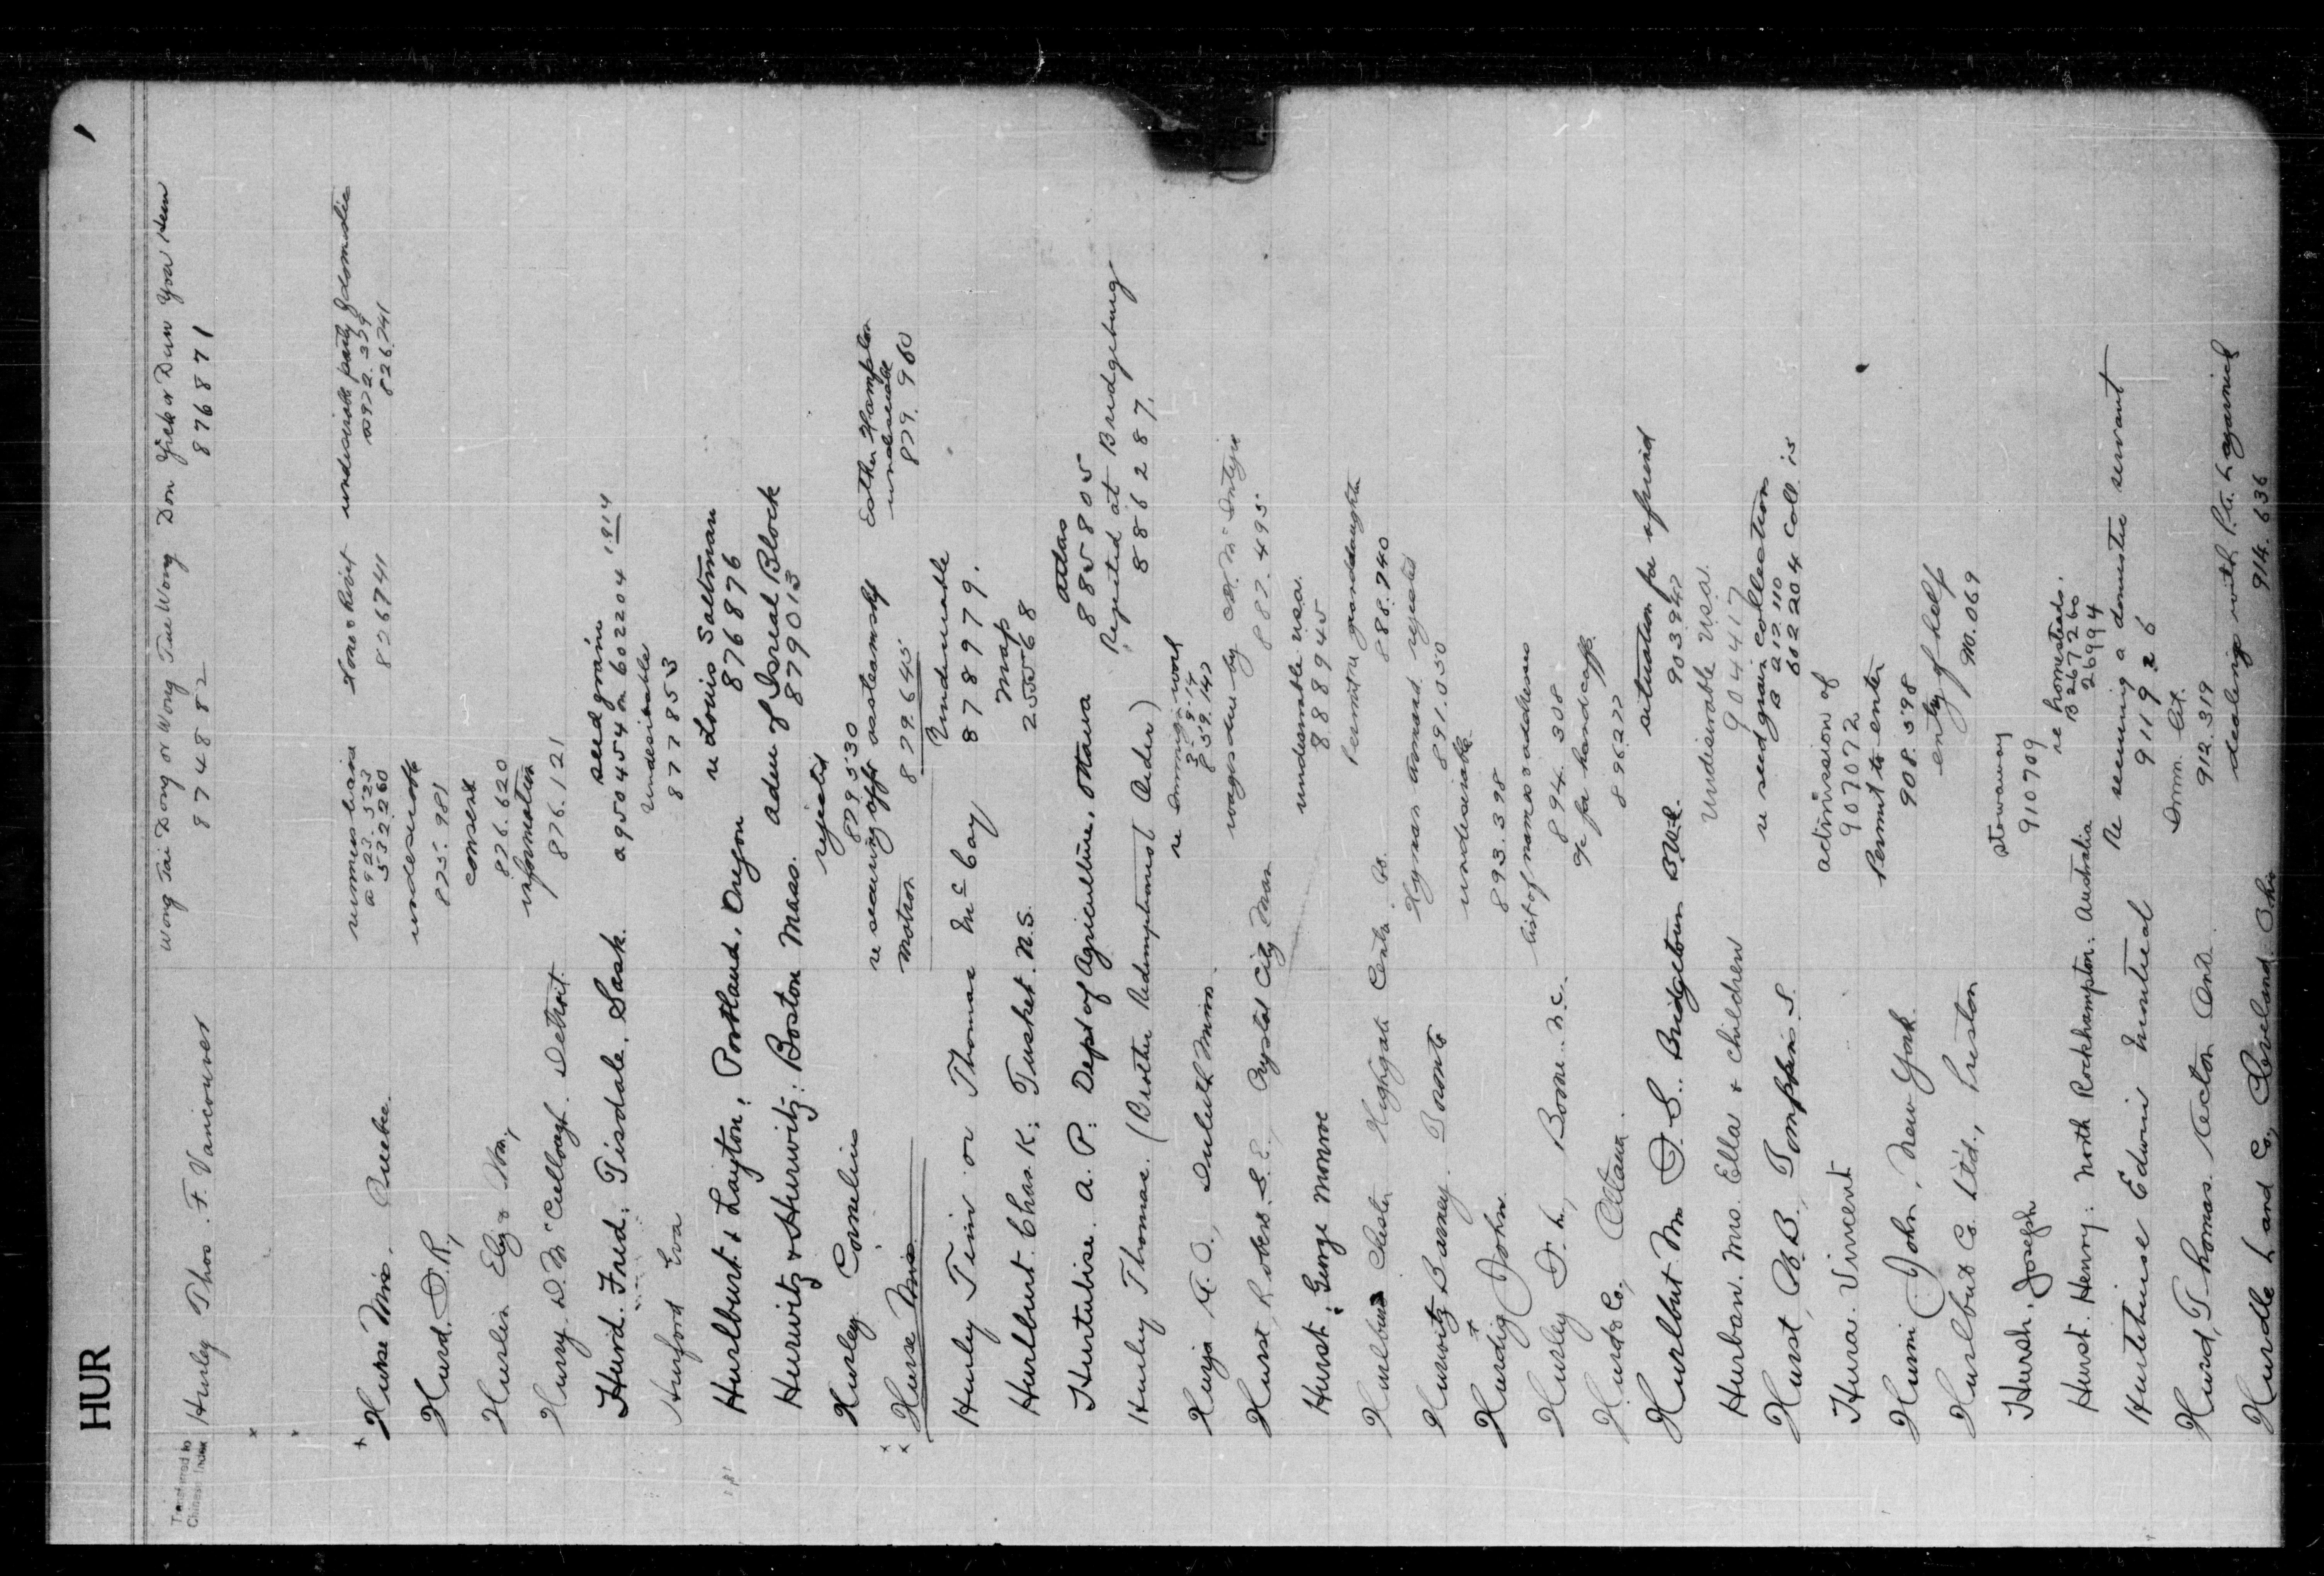 HUR
Transferred to Chinese Index
Hurley Thos. F. Vancouver Wong Tai Dong or Wong Tue Wong Don Yick or Dun You Hem
874882 876871
Hurse Miss. Quebec. nurses 
a 923.523
532260
826741
undesirable party & domestic
a972.379
826741
Hurd. D. R, undesirable
825.981
consent
Hurlin Ely & Son, 826.620
information
Hurry. D. McCullough. Detroit 876.121
Hurd. Fred; Tisdale, Sask. seed grain
a 950454 on 6022204 1914
Hurford Eva Undesirable
877853
Hurlburt & Layton; Portland, Oregon re Louis Saltman
876876
Hurwitz & Hurwitz; Boston Mass. Aden of Isreal Block
879013
Hurley Cornelius rejected
879530
Hurse Miss re securing appt as steamship matron
879.645
Esther Hampton undesirable
879.960
Hurley Tim or Thomas McCay Undesirable
878979.
Hurlburt Chas. K; Tusket. N.S. Map
255568
Hurtubise. A. P: Dept of Agriculture, Ottawa Atlas
885805
Hurley Thomas. (Brother Redemptionist Order) Rejected at Bridgeburg
886287.
Hurja A. O., Duluth Minn. re Immign work
3-9-14
859.147
Hurst, Robert. S. E., Crystal City Man wages due by McIntyre
887.495
Hurst; George Monroe undesirable USA.
888945
Hurlburt Chester Highgate Centre Permit re granddaughter
888.740
Hurwitz Barney. Toronto Hyman Conard rejected
891.050
Hurdig John undesirable
893.398
Hurley D. L., Boone. N.C. list of names & addresses
894.308
Hurd & Co., Ottawa. a/c for handcuffs.
896277
Hurlbut Mr D. S. Bridgetown B.W.I. situation for a friend
903947
Hurban. Mrs. Ella & children Undesirable USA.
904417
Hurst, A. B., Tompkins. S. re seed grain collection
B 212.110
602204 Coll. 15
Hura. Vincent admission of
907072
Hurni John, New York. Permit to enter
908.598
Hurlbut Co. Ltd., Preston entry of help
910.069
Hursh, Joseph Stowaway
910709
Hurst. Henry: North Rockhampton. Australia re homesteads.
B 26726
26994
Hurtubuise Edwin Montreal Re securing a domestic servant
911926
Hurd, Thomas. Acton Ont. Imm. Act.
912.319
Hurdle Land Co., Cleveland. Ohio dealings with
914.636